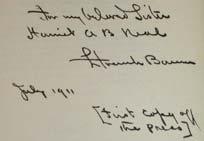 For my beloved Sister
Harriet A B Neal
L Frank Baum
July 1911
[First copy off
the press]